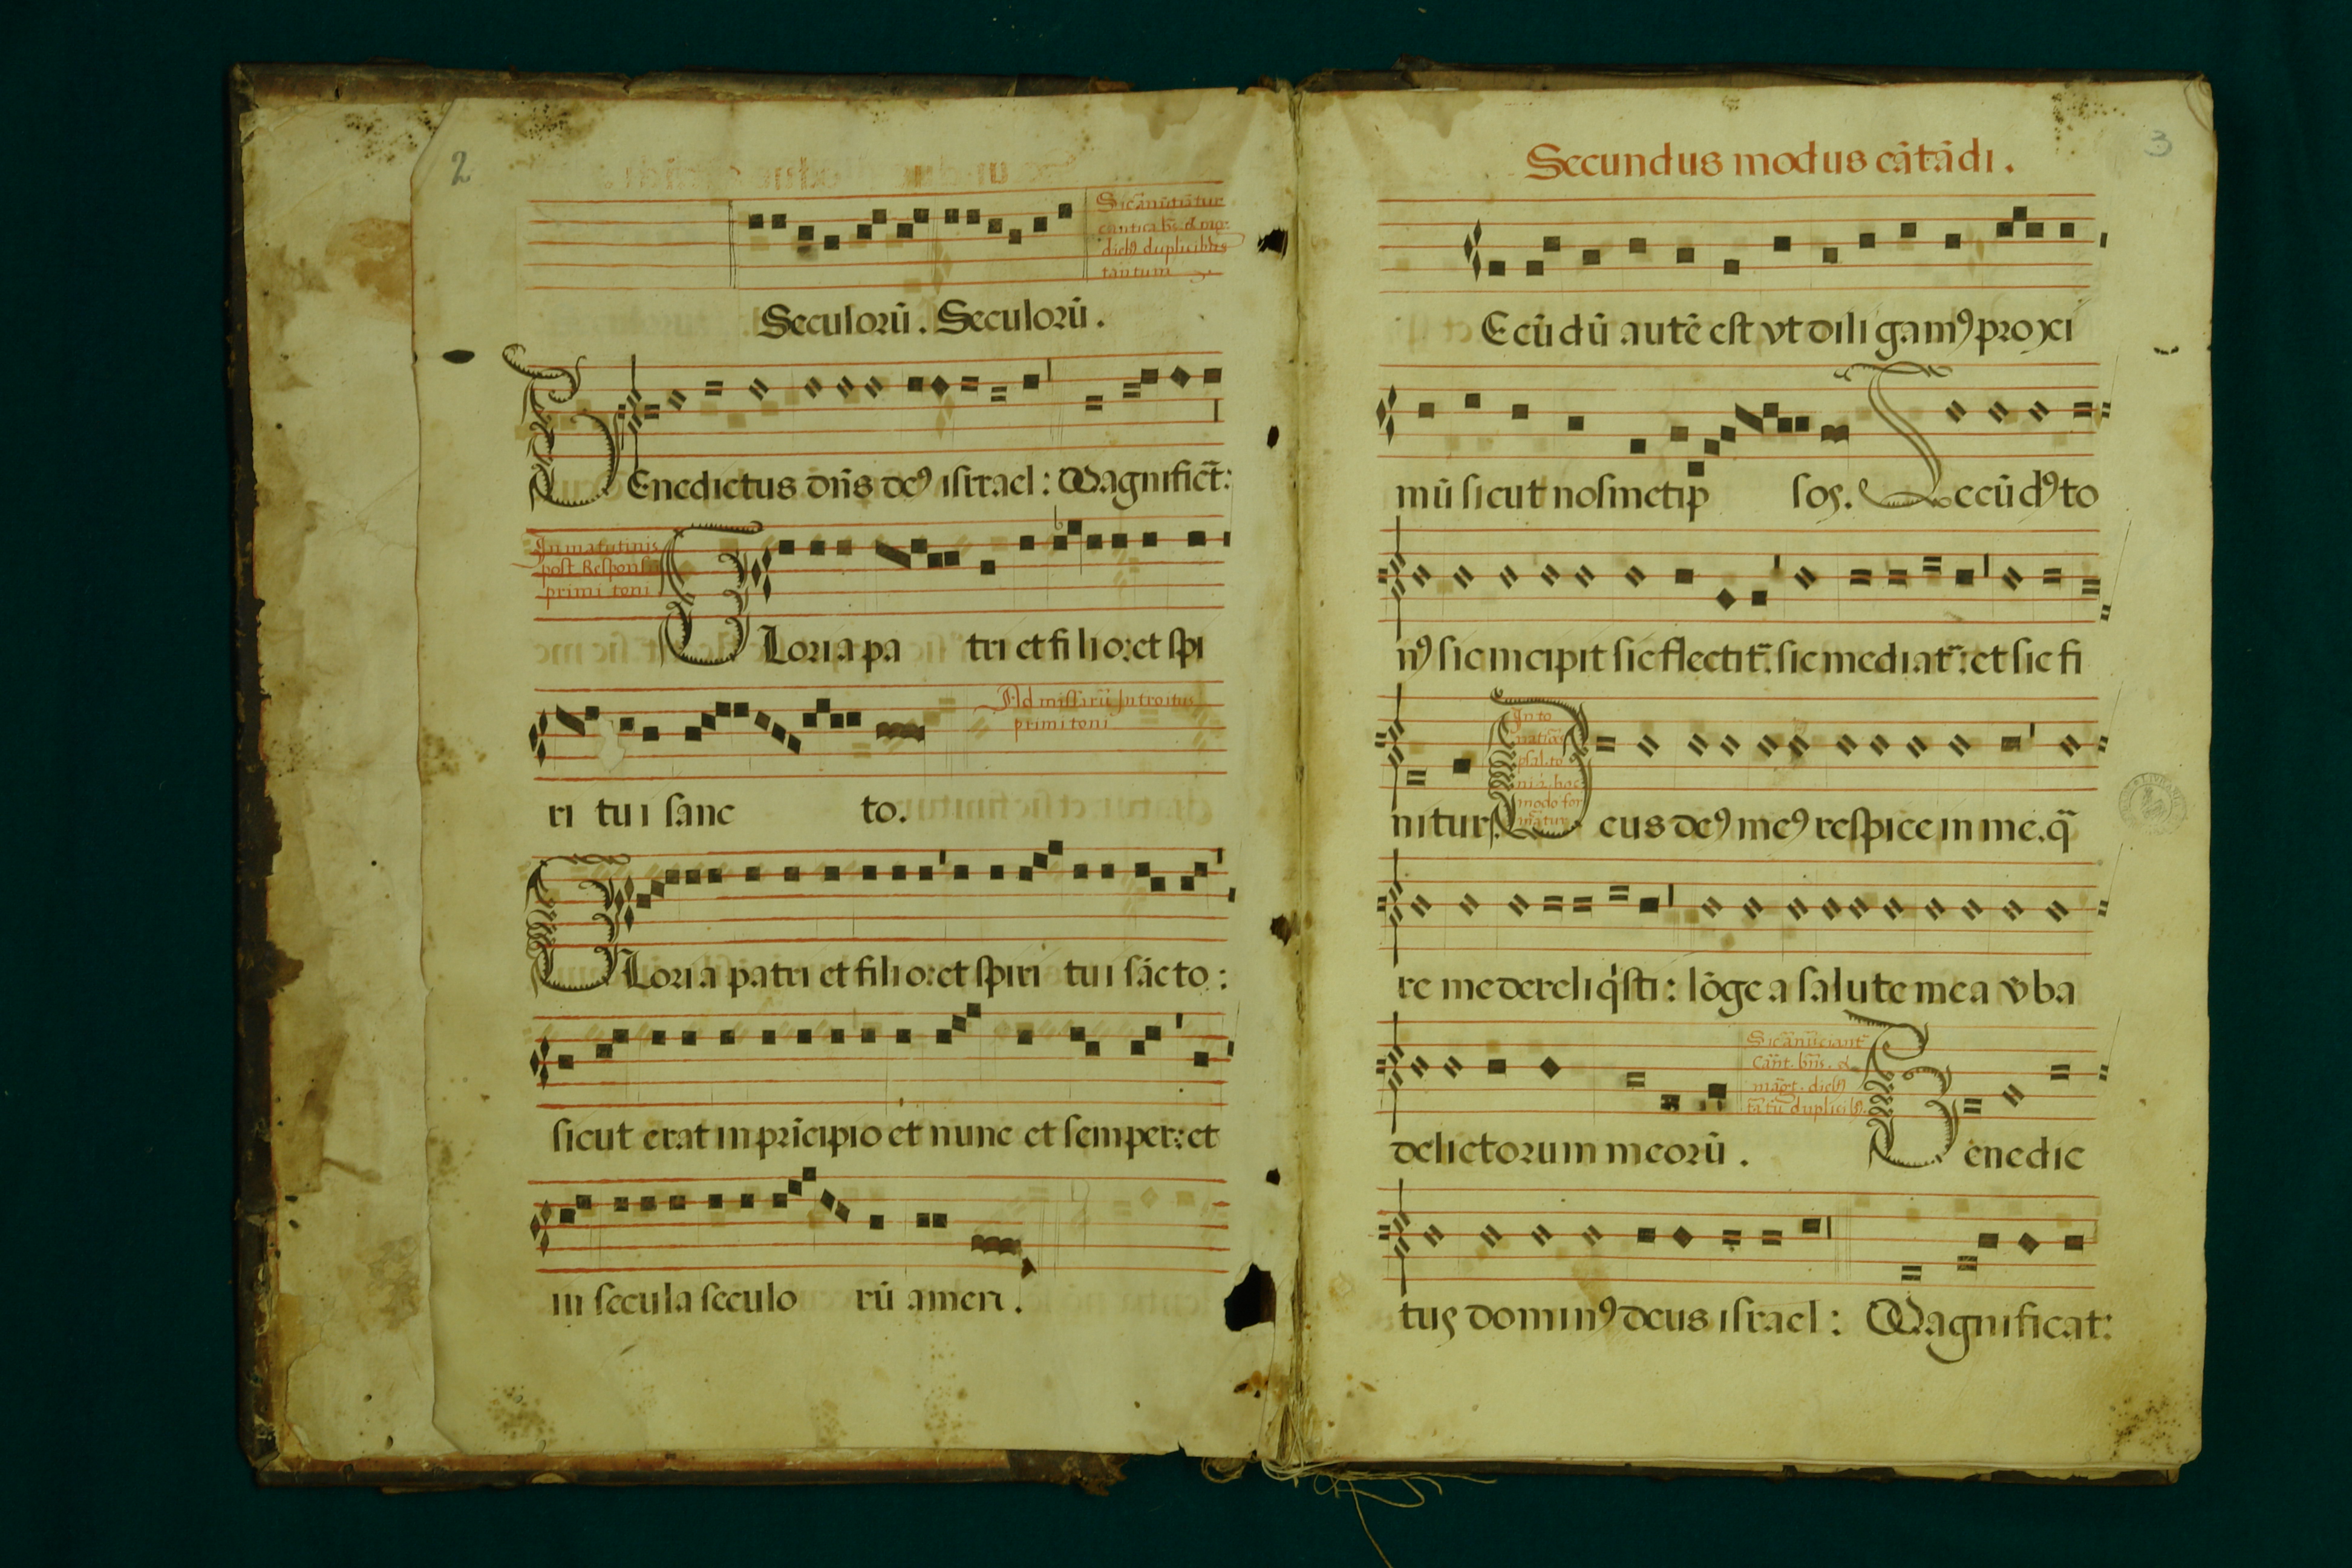 2
Sic añūtiãtur
cantica bs. & mg:
dieb9 duplicibus
tantum
Seculorū. Seculorū.
BEnedictus dñs de9 isrrael: Magnifict̄:
In matutinis
post Responsū
primi toni
GLoria pa tri et filio: et spi
Ad missarū Introitus
primi toni
ri tui sanc to.
GLoria patri et filio: et spiri tui sãcto:
sicut erat in pricipio et nunc et semper: et
in secula seculo rū amen.
3
Secundus modus cātādi.
Ecūdū autē est vt diligam9 proxi
mū sicut nosmetip sos. Secūd9 to
n9 sic incipit sic flectit̄: sic mediat̄: et sic fi
nitur.
In to
psal. to
hoc
modo for
Deus de9 me9 respice in me. q̄
re me dereliq'sti: lōge a salute mea v̄ba
delictorum meorū.
Sic añūciant̄
Cãnt. bñs. &
mãgt. dieb9
tãtū duplicib9.
Benedic
tus domin9 deus israel: Magnificat: